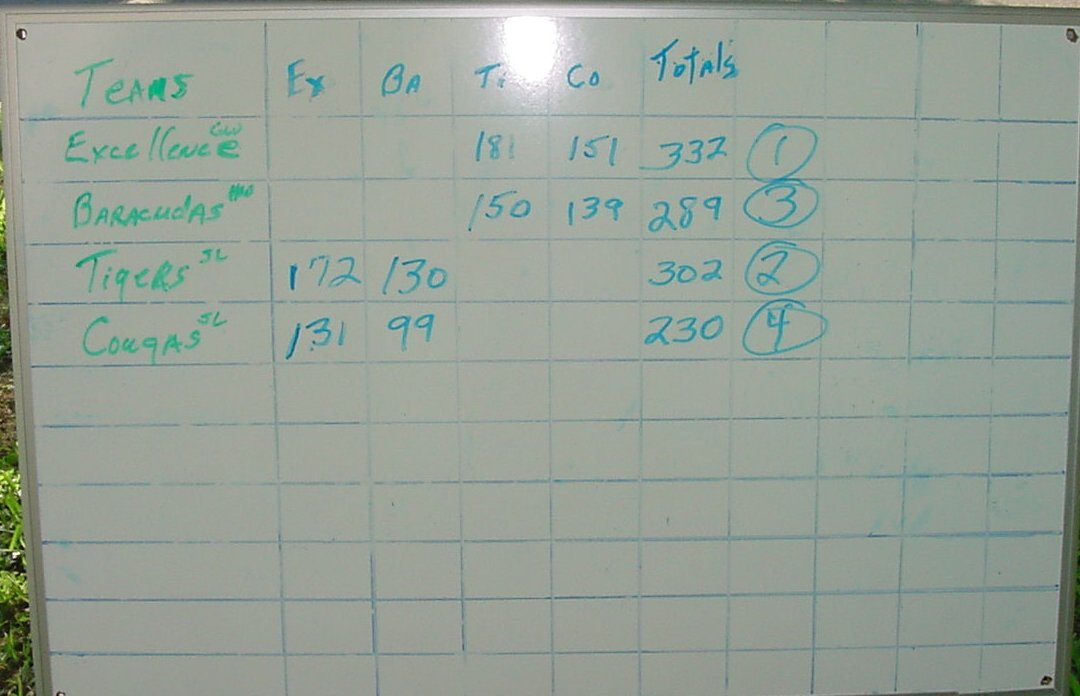 Teams Ex BA Ti Co Totals
Excellence 181 151 332 1
BARACudAS 150 139 289 3
TigeRS JL 172 130 302 2
CougAS JL 131 99 230 4